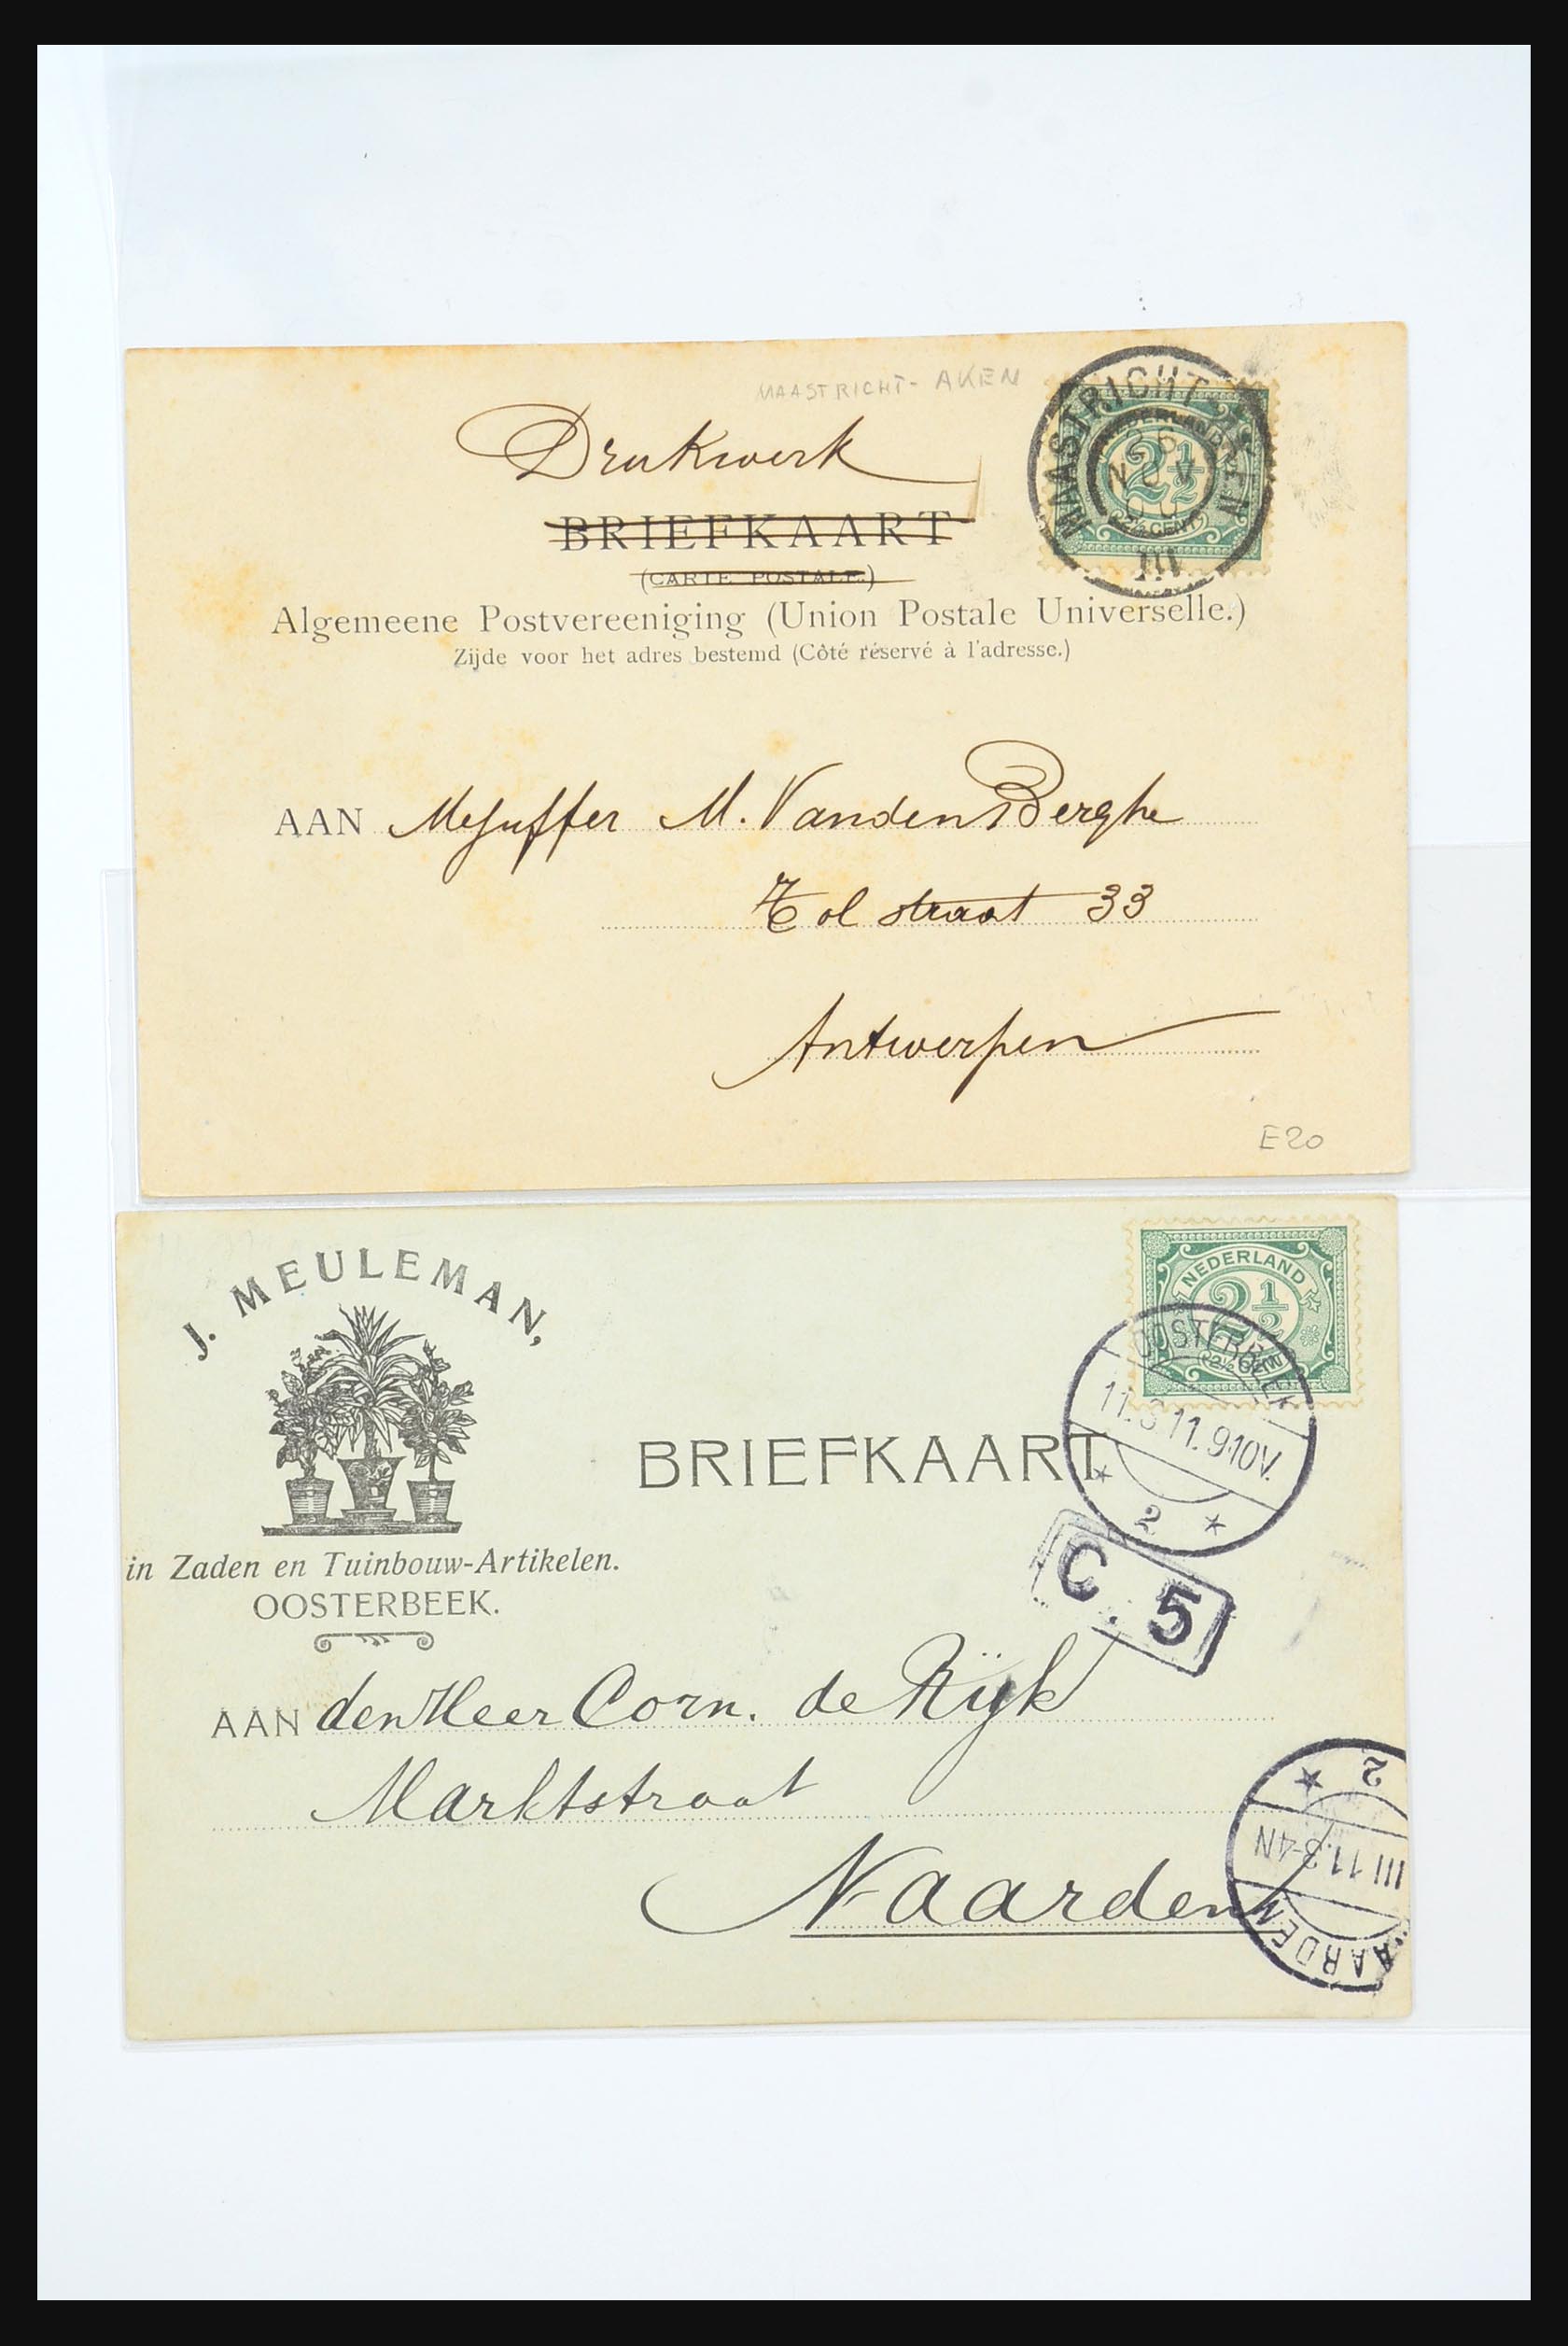 MAASTRICHT - AKEN
Drukwerk
MAASTRICHT AKEN
NEDERLAND
2½
NOV
2½ CENT
III
BRIEFKAART
(CARTE POSTALE.)
Algemeene Postvereeniging (Union Postale Universelle.)
Zijde voor het adres bestemd (Côté réservé à l'adresse.)
AAN Mejuffer M. Vanden Berghe
Tolstraat 33
Antwerpen
E20
J. MEULEMAN,
NEDERLAND
2½
2½ CENT
OOSTERBEEK
11.3 11. 9-10V.
2
BRIEFKAART
C. 5
in Zaden en Tuinbouw-Artikelen.
OOSTERBEEK.
AAN den Heer Corn. de Rijk
Marktstraat
Naarden
2
III 11.3-4N
AARDEN